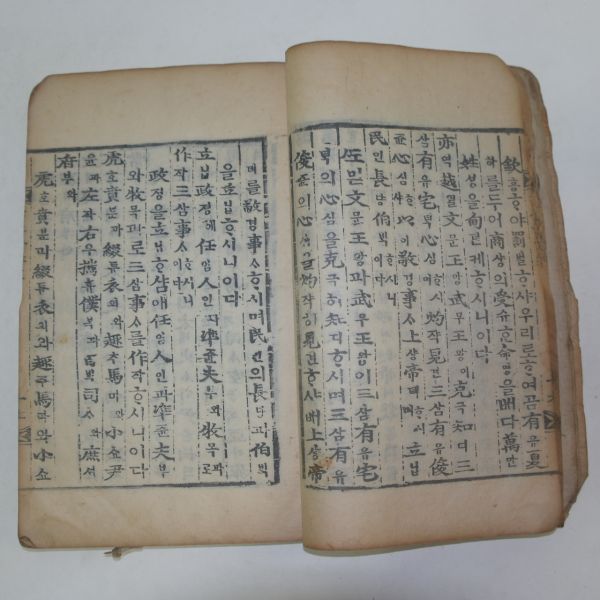 欽흠ᄒᆞ야罰벌ᄒᆞ샤우리로ᄒᆞ여곰有유夏
하를두어商샹의受슈ᄒᆞᆫ命명을ᄡᅥ다萬만
姓셩을甸뎐케ᄒᆞ시니이다
亦역越월文문王왕武무王왕의克극知디三
삼有유宅ᄐᆡᆨ心심ᄒᆞ시며灼쟉見견三삼有유俊
쥰心심ᄒᆞ샤ᄡᅥ敬경事ᄉᆞ上샹帝뎨ᄒᆞ시며立닙
民민長댱伯ᄇᆡᆨᄒᆞ시니이다
ᄯᅩ믿文문王왕과武무王왕이三삼有유宅
ᄐᆡᆨ의心심을克극히知디ᄒᆞ시며三삼有유
俊쥰의心심을灼쟉히見견ᄒᆞ샤ᄡᅥ上샹帝
뎨를敬경事ᄉᆞᄒᆞ시며民민의長댱과伯ᄇᆡᆨ
을立닙ᄒᆞ시니이다
立닙政졍에任임人인과準쥰夫부와牧목으로
作작三삼事ᄉᆞᄒᆞ시니이다
政졍을立닙홈애任임人인과準쥰夫부
와牧목과로三삼事ᄉᆞ를作작ᄒᆞ시니이다
虎호賁분과綴튜衣의와趣추馬마와小쇼尹
윤과左좌右우攜휴僕복과百ᄇᆡᆨ司ᄉᆞ와庶셔
府부와
虎호賁분과綴튜衣의와趣추馬마와小쇼